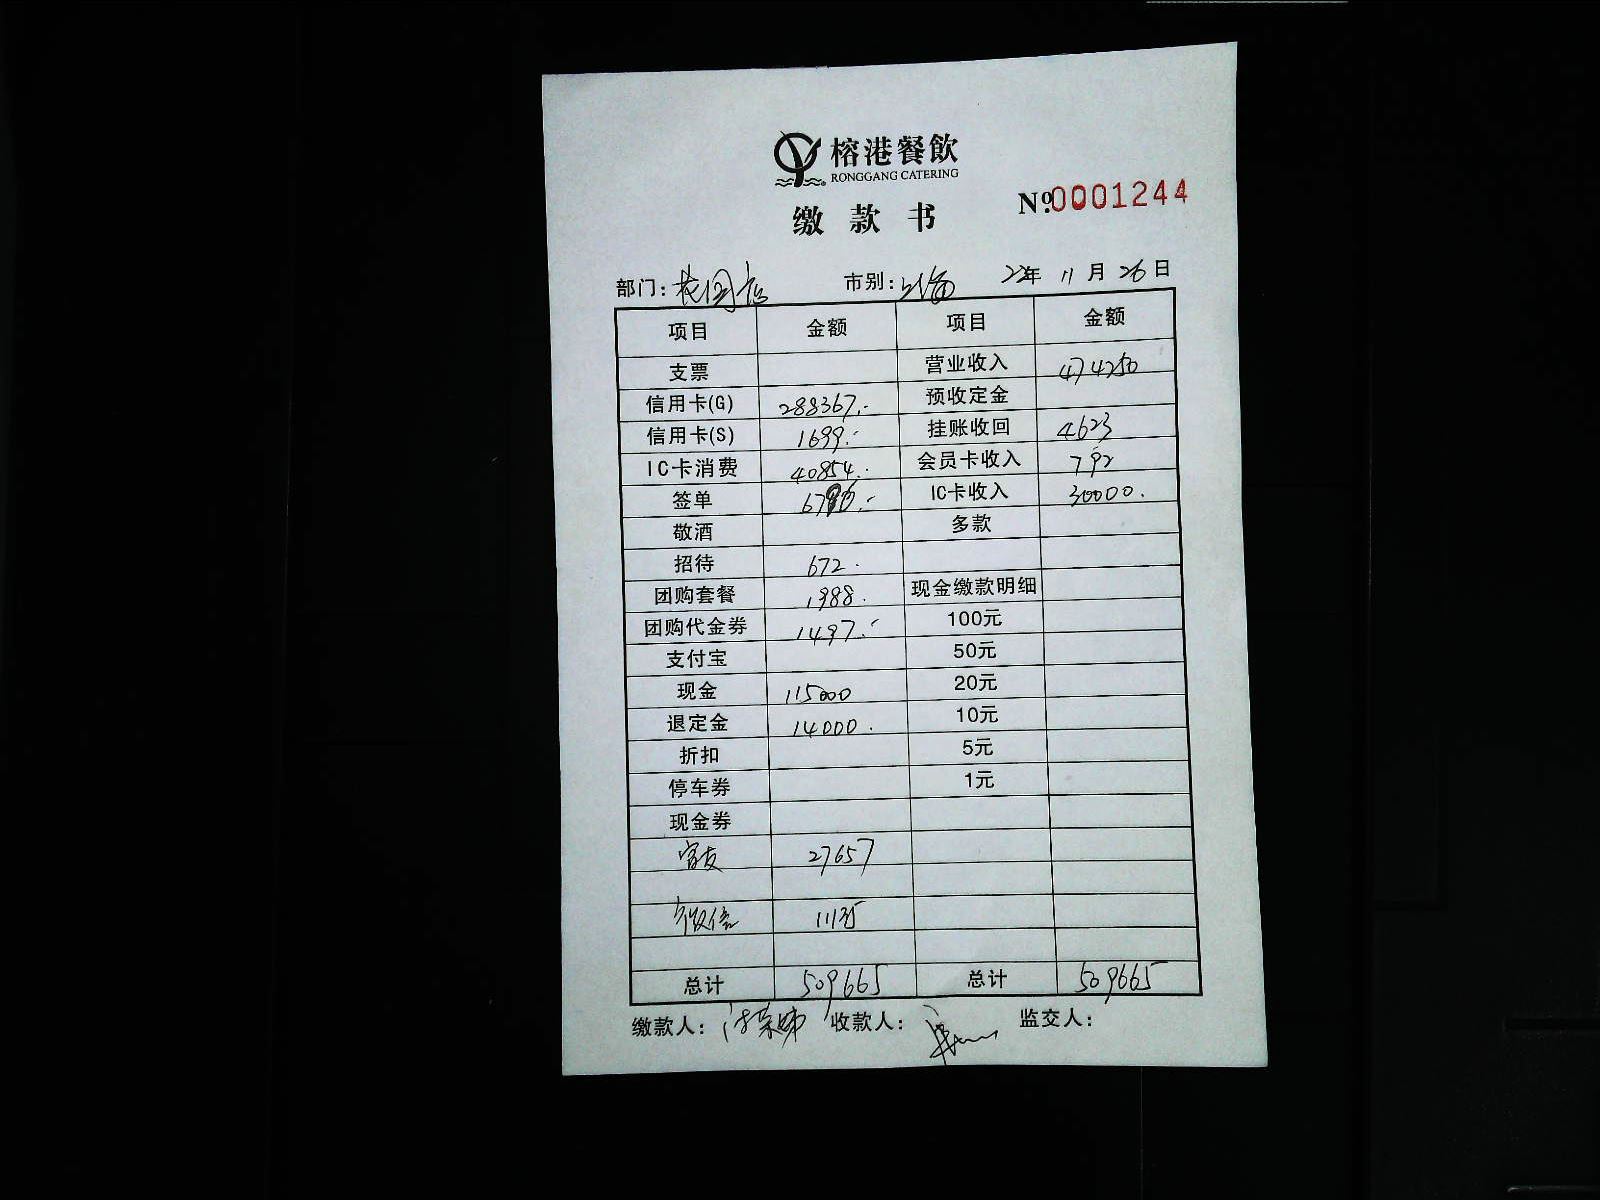 榕港餐飲
RONGGANG CATERING
缴款书
№0001244
部门：花园店 市别： 22年 11月 26日
项目 金额 项目 金额
支票 营业收入 474250
信用卡(G) 288367.- 预收定金
信用卡(S) 1699.- 挂账收回 4623
IC卡消费 40854.- 会员卡收入 792
签单 IC卡收入 30000.
敬酒 多款
招待 672.
团购套餐 1988. 现金缴款明细
团购代金券 1497.- 100元
支付宝 50元
现金 115000 20元
退定金 14000. 10元
折扣 5元
停车券 1元
现金券
富友 27657
微信 11135
总计 509665 总计 509665
缴款人： 收款人： 监交人：